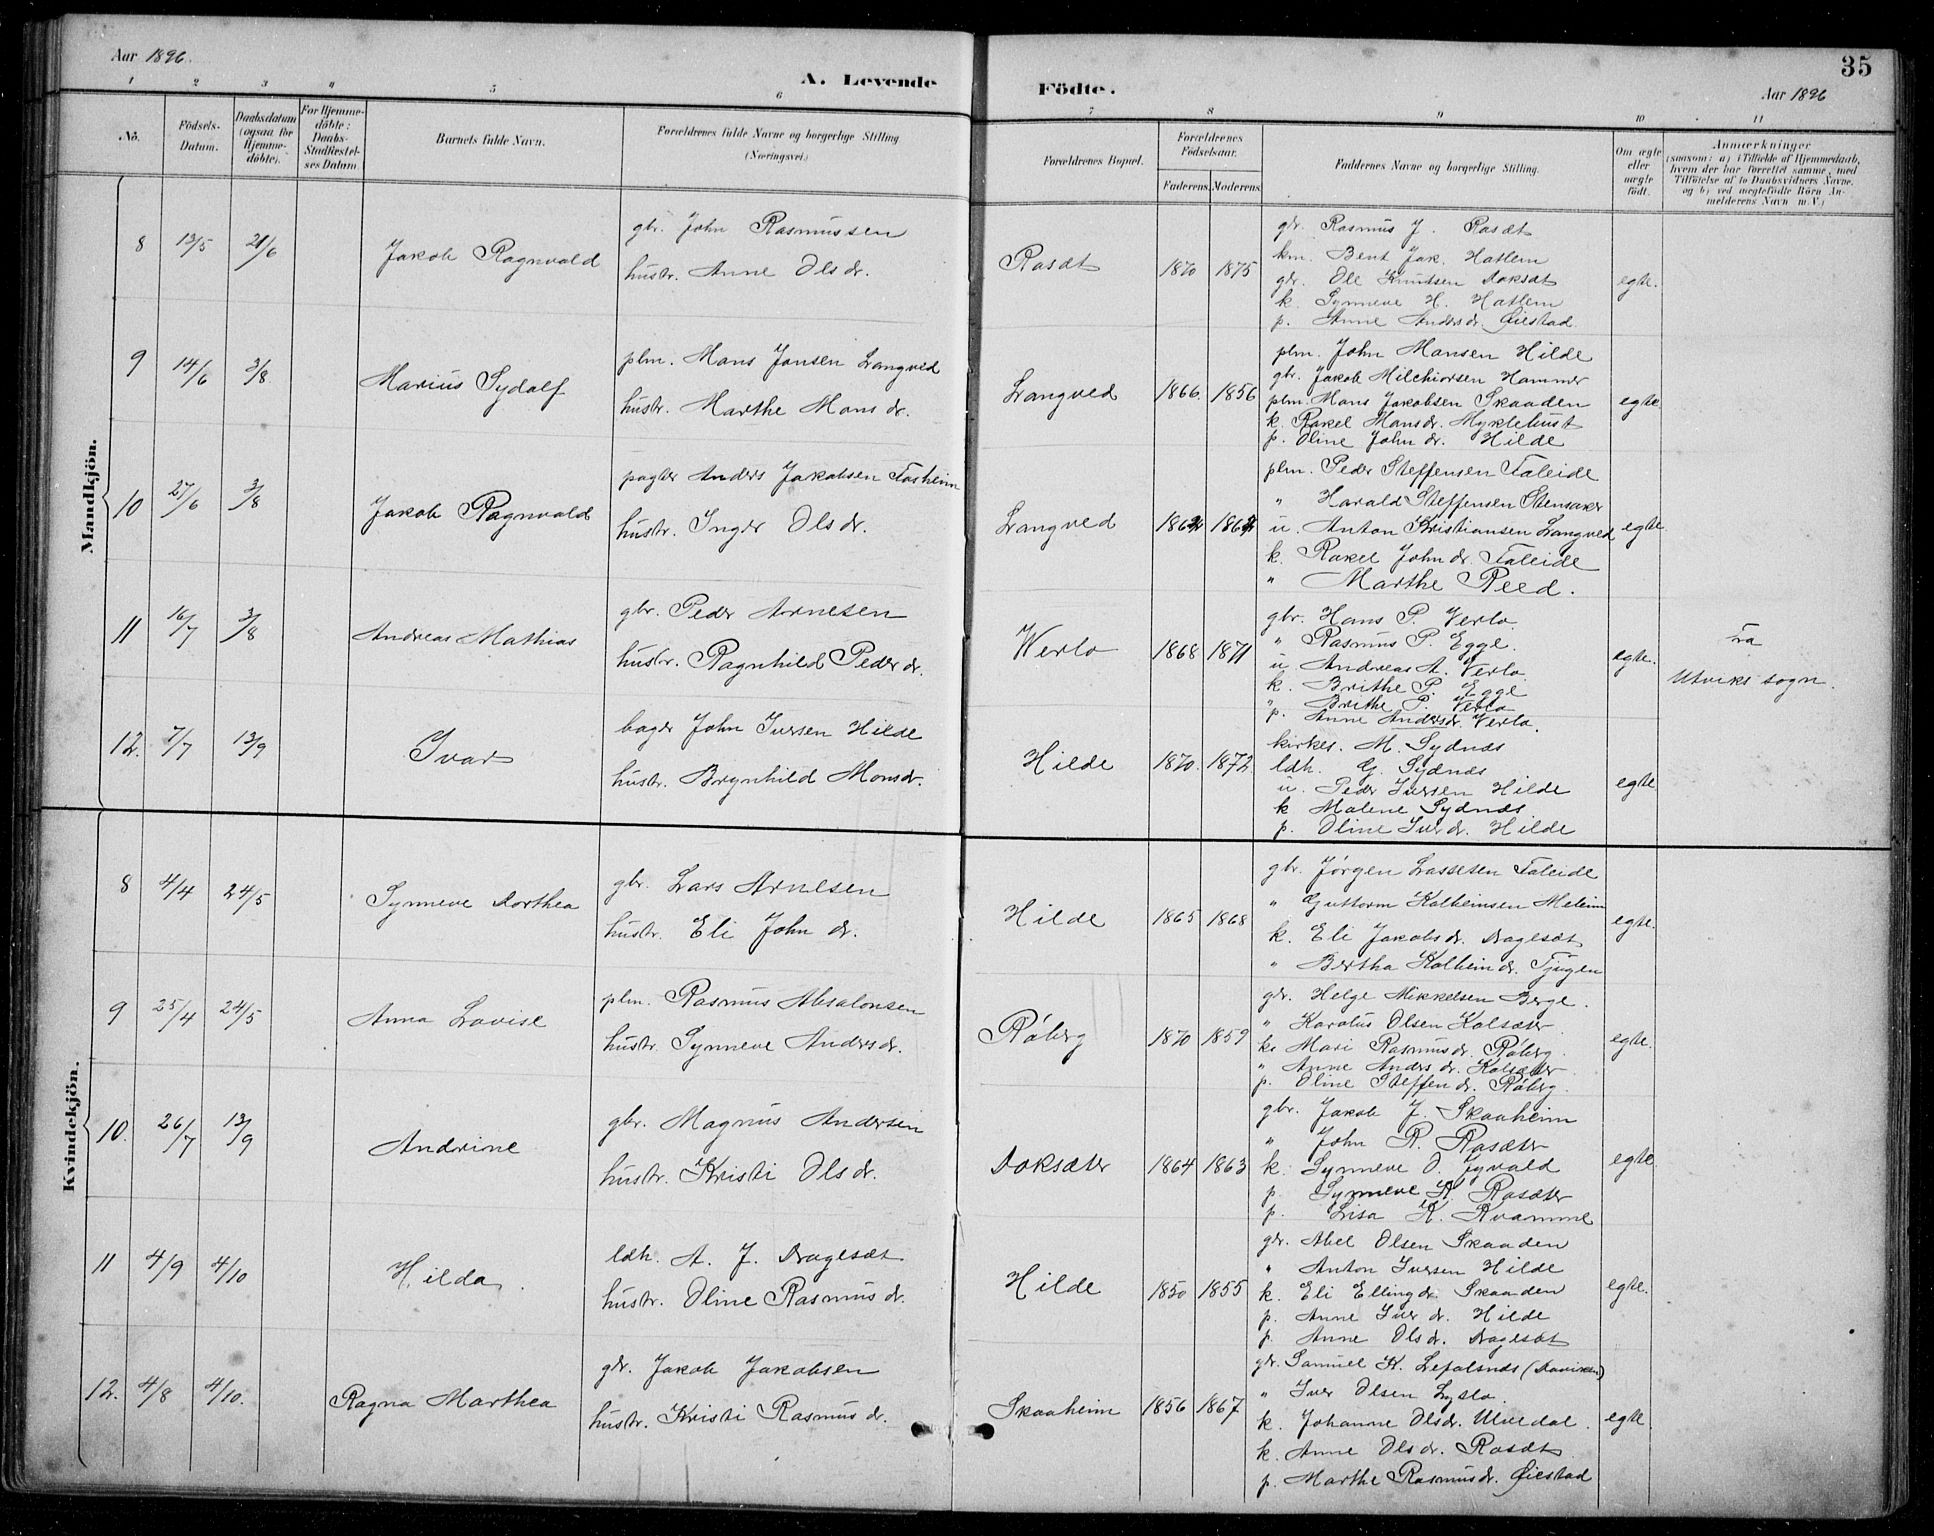 Aar 1896.
A. Levende Födte.
35
Aar 1896
1 2 3 4 5 6 7 8 9 10 11
No.
Födsels-Datum.
Daabsdatum (ogsaa for Hjemmedöbte).
For Hjemmedöbte: Daabs-Stadfæstelses Datum.
Barnets fulde Navn.
Forældrenes fulde Navne og borgerlige Stilling (Næringsvei.)
Forældrenes Bopæl.
Forældrenes Födselsaar.
Faderens. Moderens.
Faddernes Navne og borgerlige Stilling.
Om ægte eller uægte födt.
Anmærkninger
(saasom: a) i Tilfælde af Hjemmedaab,
hvem der har forrettet samme, med
Tilföielse af to Daabsvidners Navne,
og b) ved uægtefödte Börn An-
melderens Navn m. V.)
Mandkjön.
8 13/5 21/6 Jakob Ragnvald
gbr. John Rasmussen
hustr. Anne Olsdr.
Rasæt 1870 1875
gbr. Rasmus J. Rasæt
km. Bent Jak. Hatlem
gbr. Ole Knutsen Doksæt
k. Synneve H. Hatlem
p. Anne Andersdr. Öiestad
egte.
9 14/6 3/8 Marius Sydolf
plm. Mons Jonsen Langved
hustr. Marthe Monsdr.
Langved 1866. 1856
plm. John Monsen Hilde
gbr. Jakob Milchiorsen Hammer
plm. Mons Jakobsen Skaaden
k. Rakel Monsdr. Myklehust
p. Oline Johndr. Hilde
egte
10 27/6 3/8 Jakob Ragnvald
pagter Anders Jakobsen Fosheim
hustr. Inger Olsdr.
Langved
plm. Peder Steffensen Faleide
" Harald Steffensen Stensaker
u. Anton Kristiansen Langved
k. Rakel Johndr. Faleide
" Marthe Reed.
egte.
11 16/7 3/8 Andreas Mathias
gbr. Peder Arnesen
hustr. Ragnhild Pedersdr.
Werlo 1868 1871
gbr. Hans P. Verlo
" Rasmus P. Egge.
u Andreas A. Verlo
k. Brithe P. Egge
" Brithe P. Verlo
p. Anne Andersdr. Verlo.
egte.
Fra
Utviks sogn.
12. 7/7 13/9 Ivar
bager John Iversen Hilde
hustr. Brynhild Monsdr.
Hilde 1870. 1872.
kirkes. M. Sydnæs
ldh. G. Sydnæs
u. Peder Iversen Hilde
k Malene Sydnæs
p. Oline Iverdr. Hilde
egte
Kvindekjön.
8 4/4 24/5 Synneve Dorthea
gbr. Lars Arnesen
hustr. Eli Johndr.
Hilde 1865 1868
gbr. Jørgen Lassesen Faleide
" Guttorm Kolbeinsen Meleim
k. Eli Jakobsdr. Dagesæt
" Bertha Kolbeindr. Tjugen
egte.
9 25/4 24/5 Anna Lovise
plm. Rasmus Absalonsen
hustr. Synneve Andersdr.
Röberg 1870 1859
gbr. Helge Mikkelsen Berge.
" Karolus Olsen Kolsæter
k. Mari Rasmusdr. Röberg.
" Anne Andersdr. Kolsæter
p. Oline Steffendr. Röberg.
egte.
10. 26/7 13/9 Andrine
gbr. Magnus Andersen
hustr. Kristi Olsdr.
Doksæter 1864 1863
gbr. Jakob J. Skaaheim
" John R. Rasæter
k. Synneve O. Gyvald
p. Synneve K. Rasæter
p. Lisa K. Kvamme
egte
11 4/9 4/10 Hilda.
ldh. A. J. Dagesæt
hustr. Oline Rasmusdr.
Hilde 1850 1855
gbr. Abel Olsen Skaaden
" Anton Iversen Hilde
k. Eli Ellingdr. Skaaden
p. Anne Iverdr. Hilde
p. Anne Olsdr. Dagesæt
egte.
12. 4/8 4/10. Ragna Marthea
gbr. Jakob Jakobsen
hustr. Kristi Rasmusdr.
Skaaheim 1856 1867
gbr. Samuel K. Lefalsnæs (Daviken)
" Iver Olsen Lyslo.
k. Johanne Olsdr. Ulvedal.
k. Anne Olsdr. Rasæt
p. Marthe Rasmusdr. Öiestad
egte